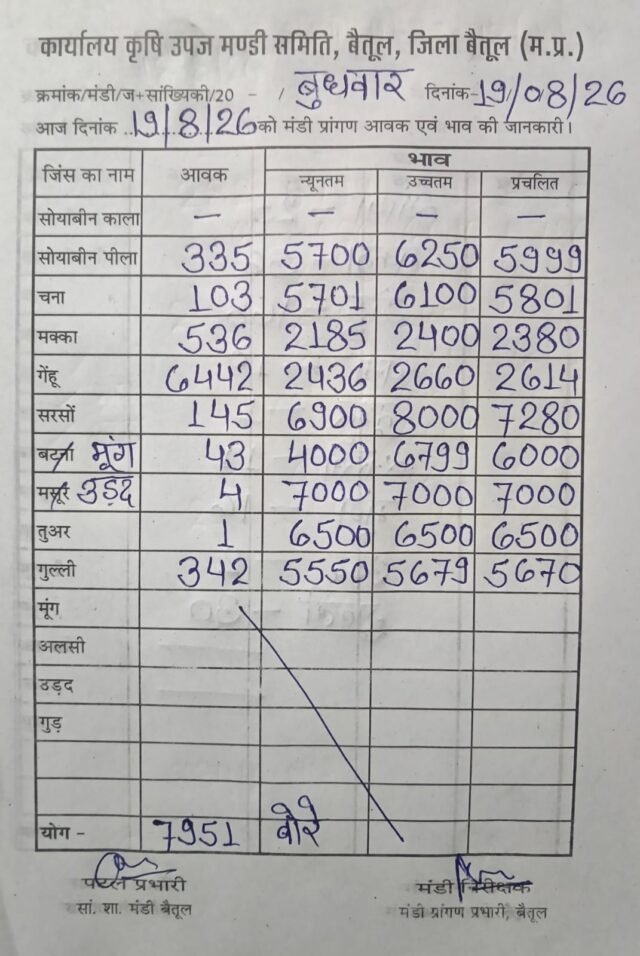 कार्यालय कृषि उपज मण्डी समिति, बैतूल, जिला बैतूल (म.प्र.)
क्रमांक/मंडी/ज+सांख्यिकी/20 - / बुधवार दिनांक-19/08/26
आज दिनांक ..19/8/26 को मंडी प्रांगण आवक एवं भाव की जानकारी।
जिंस का नाम आवक भाव
न्यूनतम उच्चतम प्रचलित
सोयाबीन काला — — — —
सोयाबीन पीला 335 5700 6250 5999
चना 103 5701 6100 5801
मक्का 536 2185 2400 2380
गेंहू 6442 2436 2660 2614
सरसों 145 6900 8000 7280
बटना मूंग 43 4000 6799 6000
मसूर उड़द 4 7000 7000 7000
तुअर 1 6500 6500 6500
गुल्ली 342 5550 5679 5670
मूंग
अलसी
उड़द
गुड़
योग - 7951 बोरे
प्रभारी मंडी निरीक्षक
सां. शा. मंडी बैतूल मंडी प्रांगण प्रभारी, बैतूल